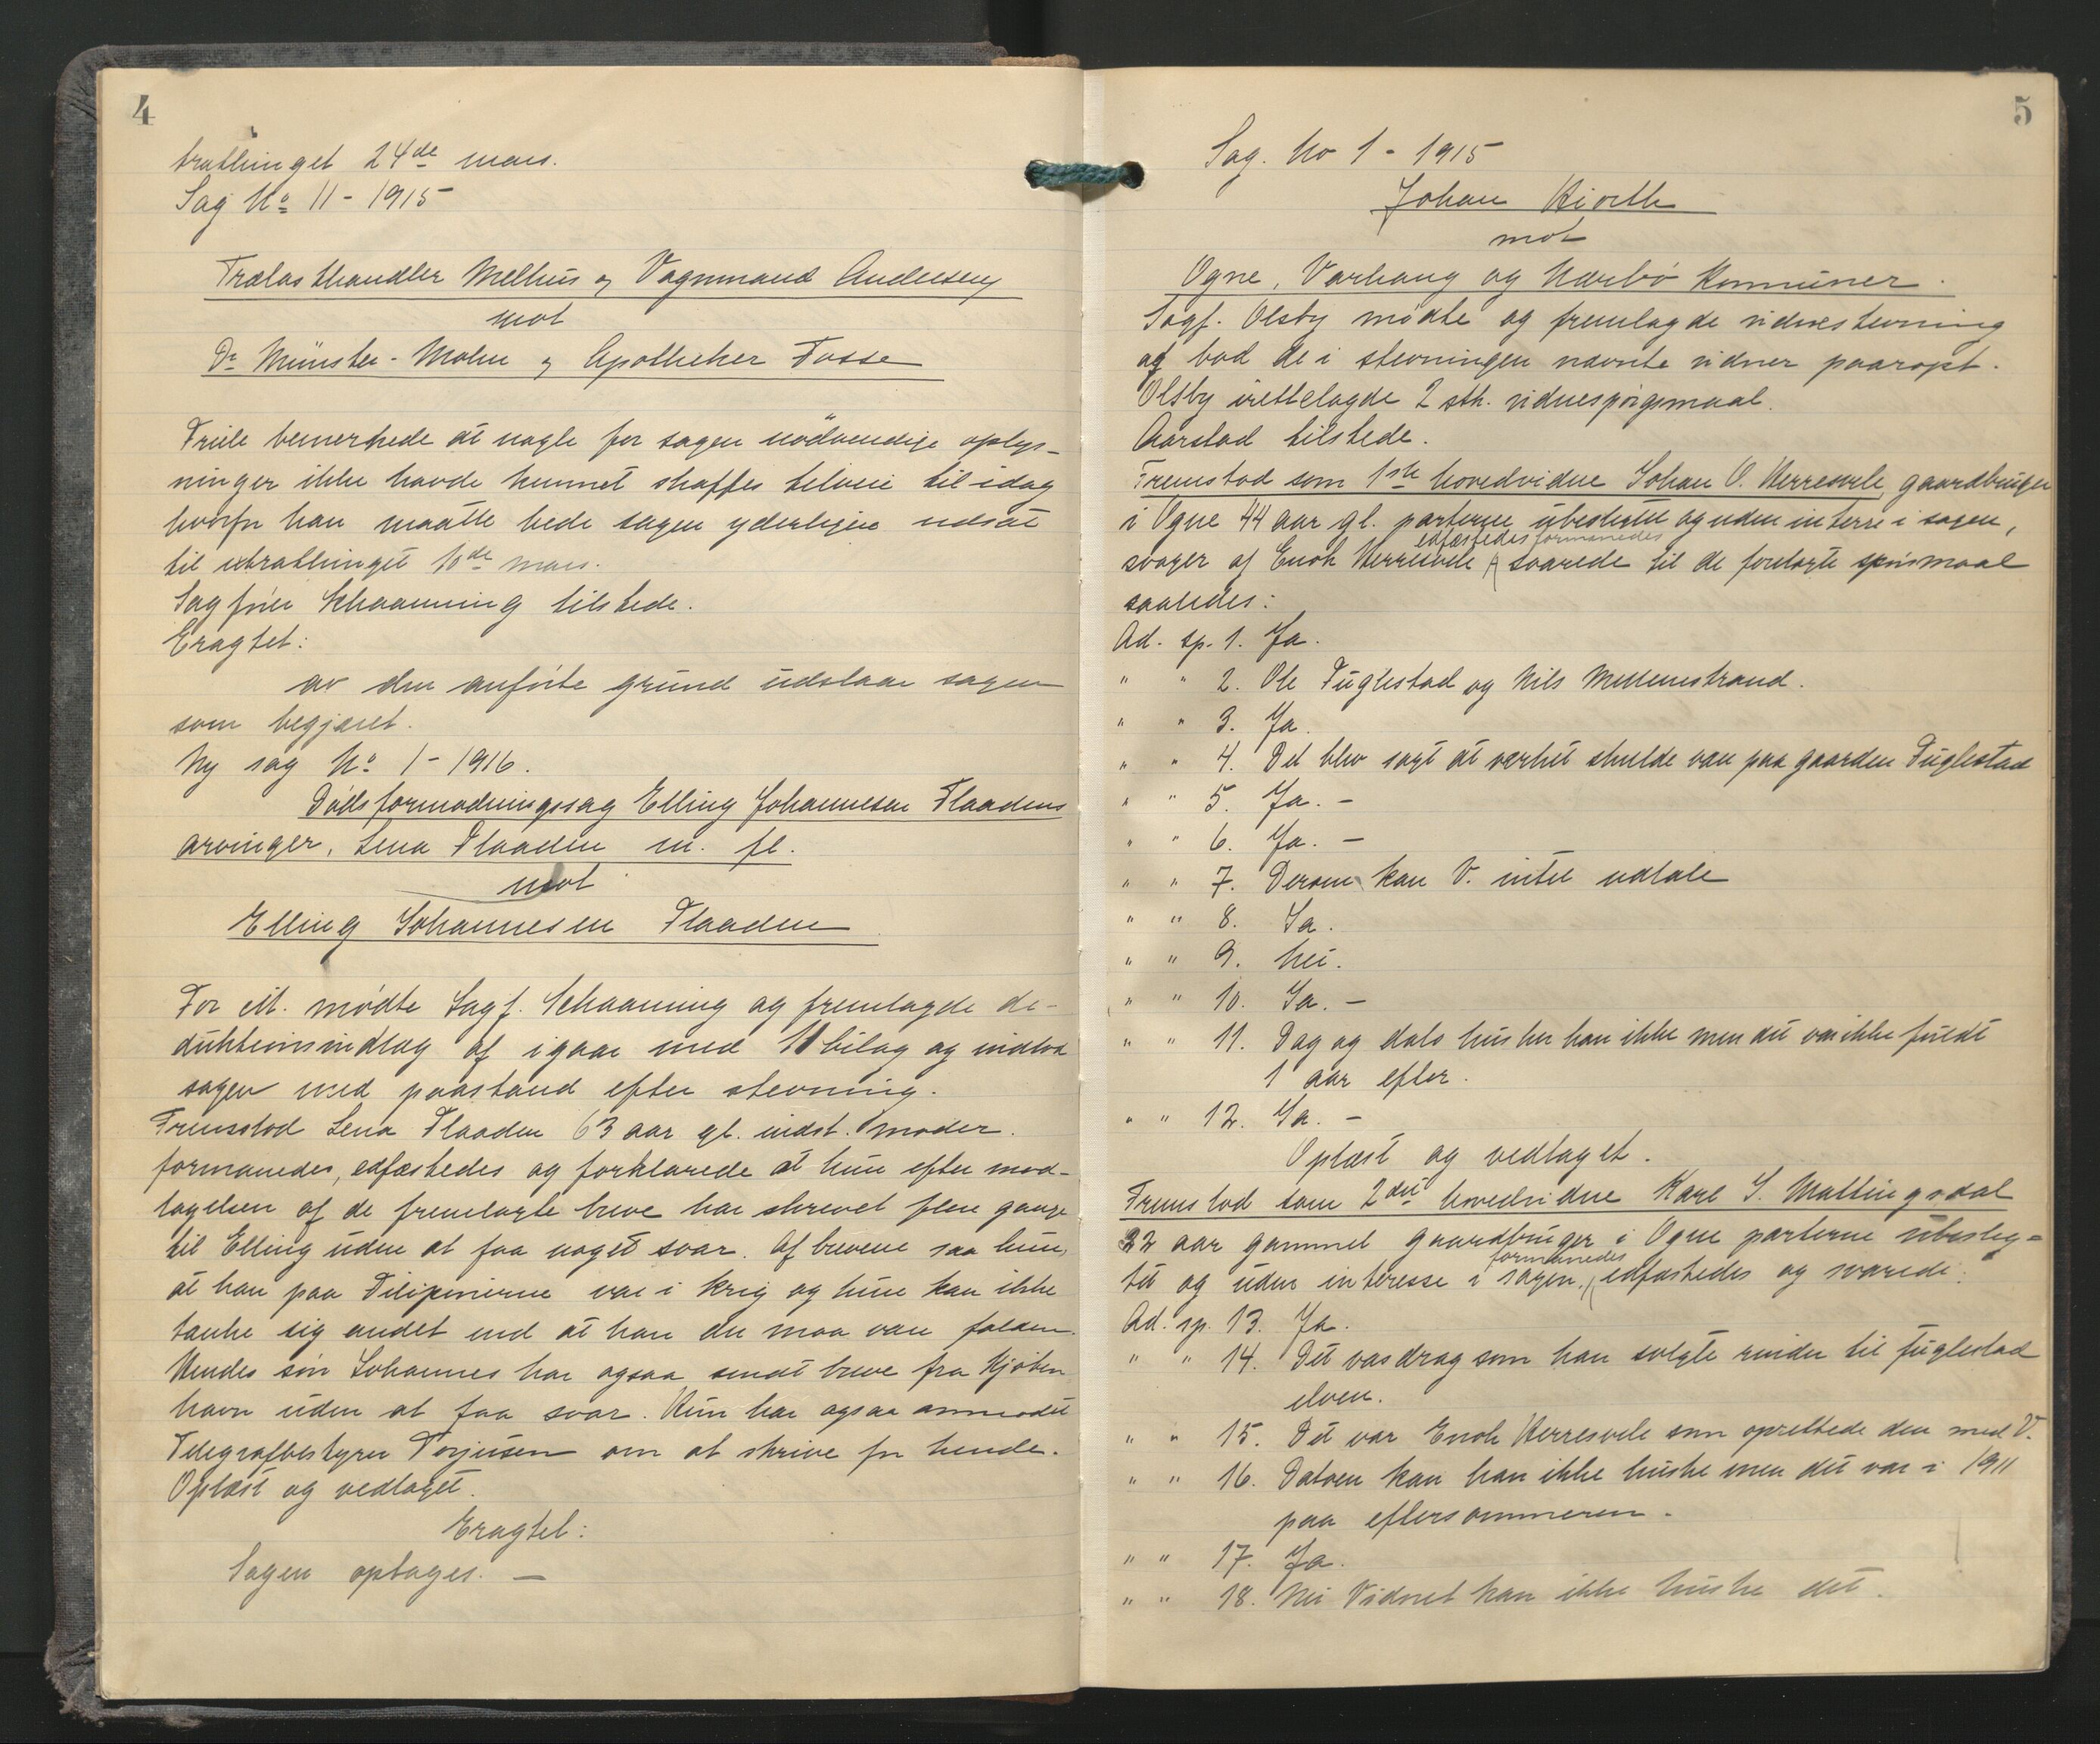 4
tratinget 24de mars.
Sag No 11 - 1915
Trælasthandler Melhus og Vognmand Andersen
mot
Dr Münster-Mohn og Apotheker Fosse
Friele bemerkede at nogle for sagen nödvendige oplys-
ninger ikke havde kunnet skaffes tilveie til idag
hvorfor han maatte bede sagen yderligere udsat
til extratinget 10de mars.
Sagfører Schaanning tilstede.
Eragtet:
av den anførte grund udstaar sagen
som begjæret.
Ny sag No 1 - 1916.
Dødsformodningssag Elling Johannesen Flaadens
arvinger, Lena Flaaden m. fl.
mot
Elling Johannesen Flaaden
For cit. mødte Sagf. Schaanning og fremlagde de-
duktionsindlæg af igaar med 11 bilag og indlod
sagen med paastand efter stevning.
Fremstod Lena Flaaden 63 aar gl. indst. moder.
formanedes, edfæstedes og forklarede at hun efter mod-
tagelsen af de fremlagte breve har skrevet flere gange
til Elling uden at faa noget svar. Af brevene saa hun,
at han paa Filipinerne var i krig og hun kan ikke
tænke sig andet end at han der maa være falden.
Hendes søn Johannes har ogsaa sendt breve fra Kjøben
havn uden at faa svar. Hun har ogsaa anmodet
Telegrafbestyrer Torjusen om at skrive for hende.
Oplæst og vedtaget.
Eragtet:
Sagen optages. —
5
Sag. No 1 - 1915
Johan Kiorth
mot
Ogne, Varhaug og Nærbø Kommuner.
Sagf. Olsby mødte og fremlagde vidnestevning
og bad de i stevningen nævnte vidner paaropt.
Olsby irettelagde 2 stk. vidnespørgsmaal.
Aarstad tilstede.
Fremstod som 1ste hovedvidne Johan O. Herresvele, gaardbruger
i Ogne 44 aar gl. parterne ubeslegtet og uden interre i sagen,
edfæstedes formanedes
svoger af Enok Herresvele svarede til de forelagte spørsmaal
saaledes:
Ad. sp. 1. Ja.
" " 2. Ole Fuglestad og Nils Mellemstrand.
" " 3. Ja.
" " 4. Det blev sagt at verket skulde være paa gaarden Fuglestad
" " 5. Ja. -
" " 6. Ja. —
" " 7. Derom kan V. intet udtale
" " 8. Ja.
" " 9. Nei.
" " 10. Ja. —
" " 11. Dag og dato husker han ikke men det var ikke fuldt
1 aar efter.
" " 12. Ja. -
Oplæst og vedtaget.
Fremstod som 2det hovedvidne Karl S. Mattingsdal
32 aar gammel gaardbruger i Ogne parterne ubesleg=
formanedes
tet og uden interesse i sagen, edfæstedes og svarede:
Ad. sp. 13. Ja.
" " 14. Det vasdrag som han solgte rinder til fuglestad
elven.
" " 15. Det var Enok Herresvele som oprettede den med V.
" " 16. Datoen kan han ikke huske men det var i 1911
paa eftersommeren.
" " 17. Ja.
" " 18. Nei Vidnet kan ikke huske det.